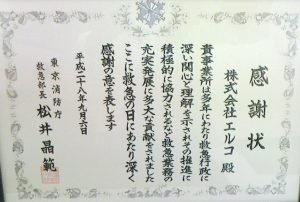 感謝状
株式会社 エルコ 殿
貴事業所は多年にわたり救急行政に
深い関心と理解を示されその推進に
積極的に協力されるなど救急業務の
充実発展に多大な貢献をされました
ここに救急の日にあたり深く
感謝の意を表します
平成二十八年九月六日
東京消防庁
救急部長 松井晶範